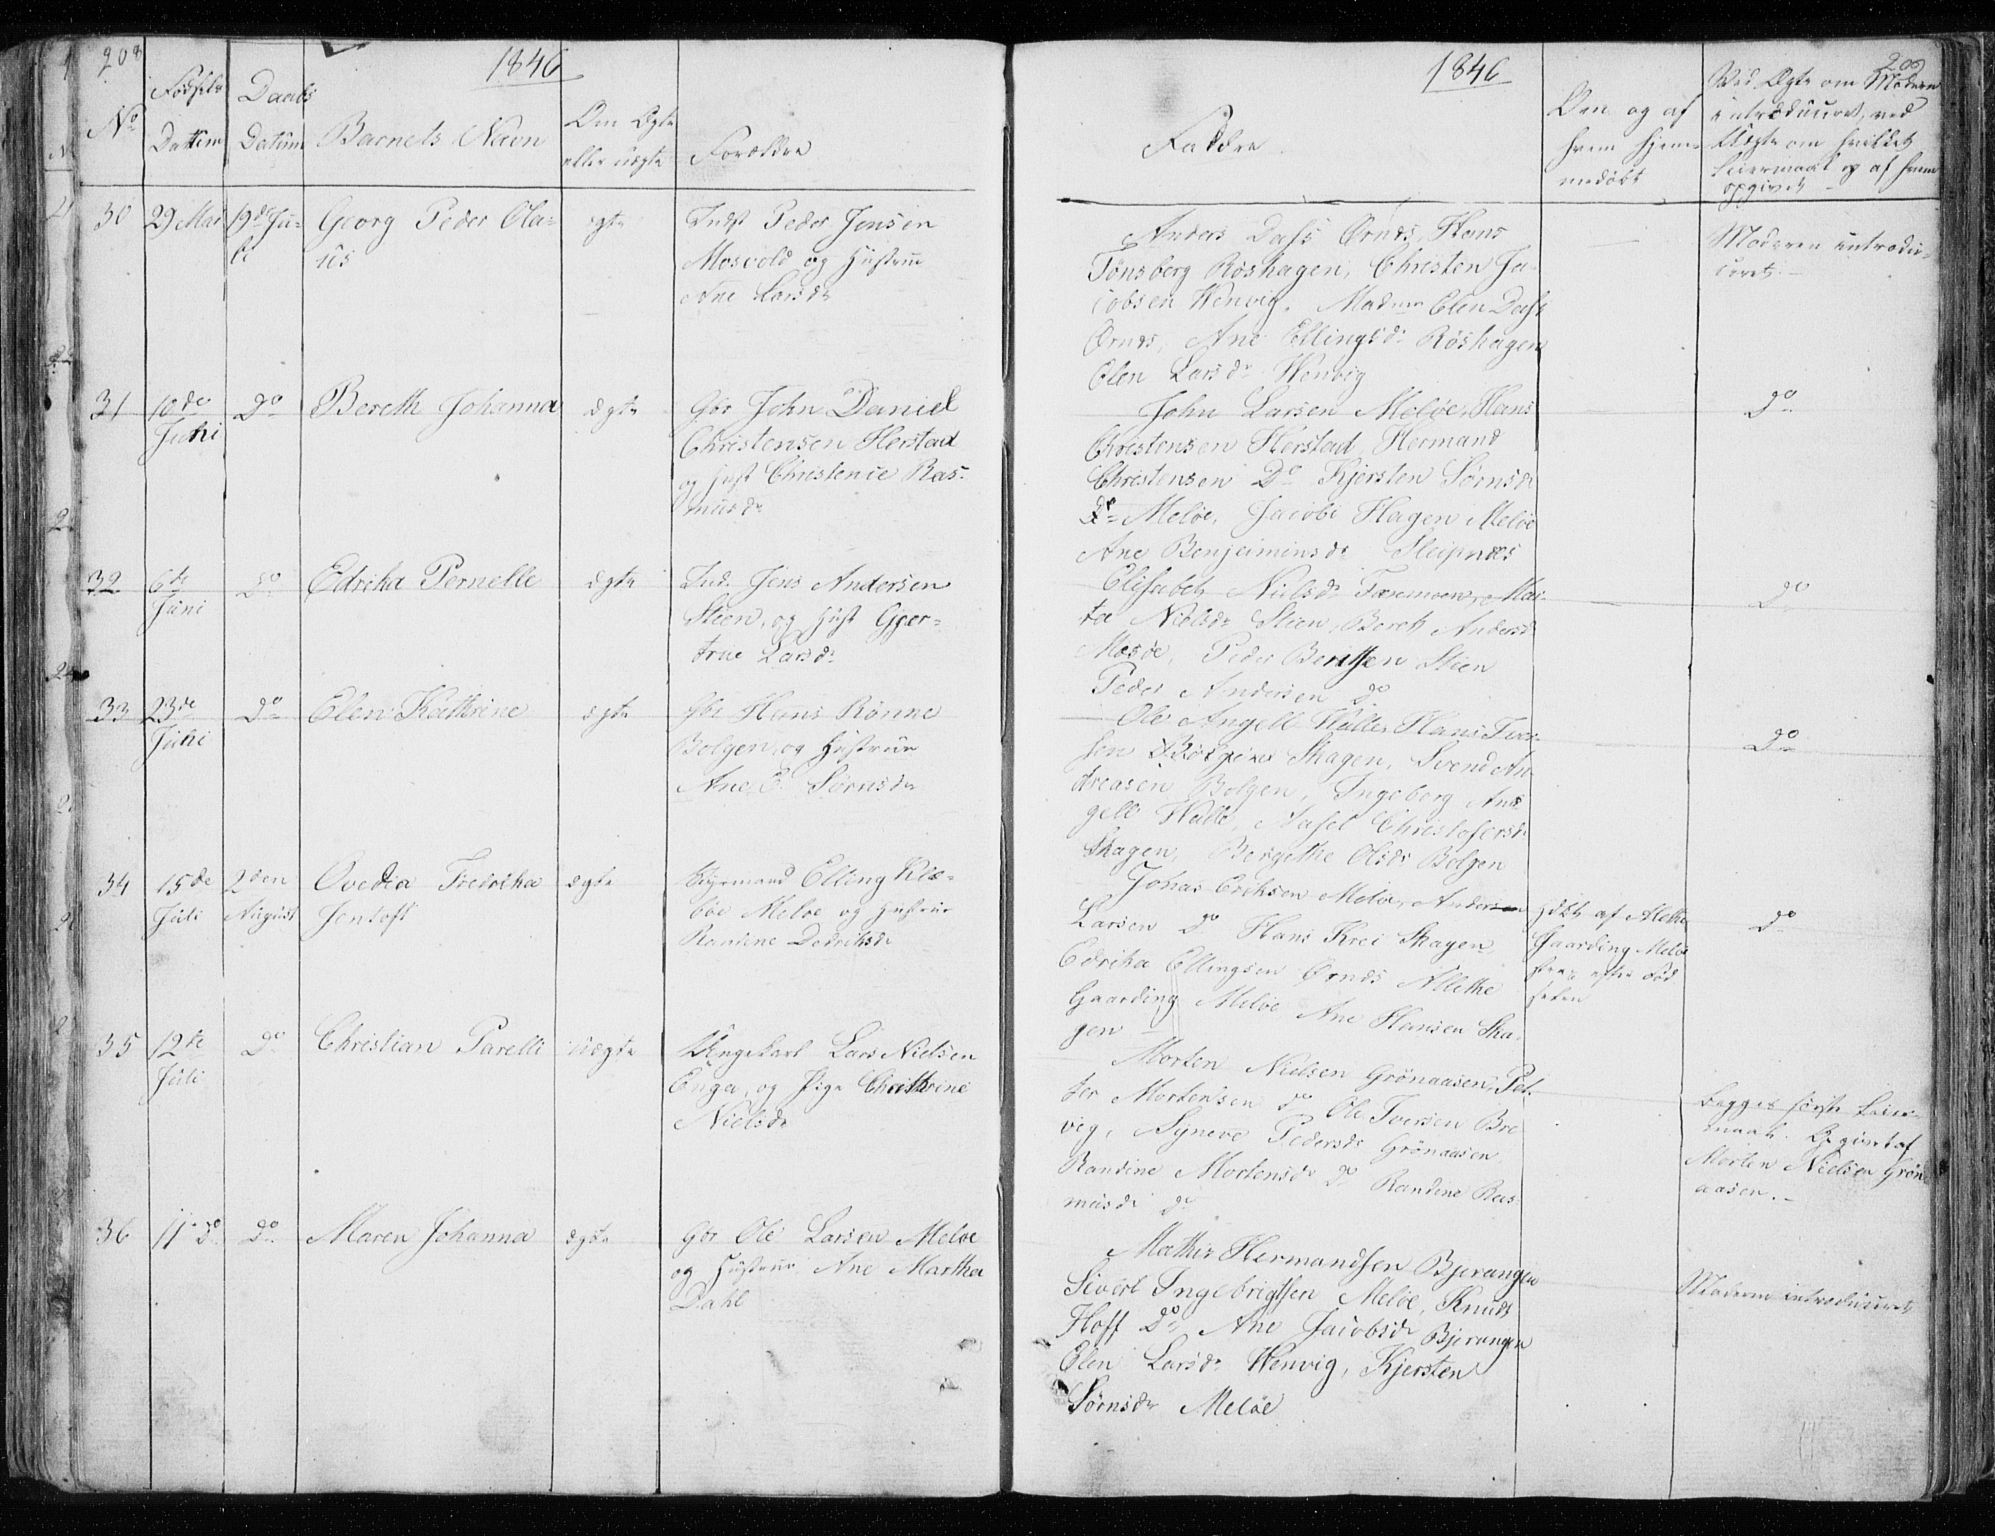 208
1846
No
Fødsels Datum
Daabs Datum
Barnets Navn
Om Ægte eller uægte
Forældre
30
29 Mai
19de Juli
Georg Peder Olaus
egte
Inds Peder Jensen
Mosvold og Hustrue
Ane Larsdr
31
10de Juni
Do
Bereth Johanna
ægte
Gbr John Daniel
Christensen Herstad
og Hust Christence Ras-
musdr
32
6te Juni
Do
Edrika Pernelle
ægte
Ind. Jens Andersen
Steen, og Hust Gjer-
true Larsdr
33
23de Juni
Do
Elen Kathrine
ægte
Gbr Hans Rønne
Bolgen, og Hustrue
Ane E Sørnsdr
34
15de Juli
2den August
Ovedia Fredrika
Jentoft
ægte
Elling Klæ-
böe Meløe og Hustrue
Randine Dedriksdr
35
12te Juli
Do
Christian Parelli
uægte
Ungekarl Lars Nielsen
Enga, og Pige Chathrine
Nielsdr
36
11te do
Do
Maren Johanna
ægte
Gbr Ole Larsen Meløe
og Hustrue Ane Martha
Dahl
1846
209
Faddre
Om og af
hvem hjem-
medøbt
Ved Ægte om Moderen
introduceret, ved
Uægte om hvilket
Leiermaal og af hvem
opgivet
Anders Dass Ørnes, Hans
Tønsberg Røshagen, Christen Ja-
cobsen Wenvig. Madme Elen Dass
Ørnes, Ane Ellingsdr Røshagen
Elen Larsdr Wenvig
Moderen introdu-
ceret.
John Larsen Meløe, Hans
Christensen Herstad, Hermand
Christensen Do Kjersten Sørnsdr
Meløe, Jacobe Hagen Meløe
Ane Benjeminsdr Sleipnes
Do
Elisabet Nielsdr Færemoen, Mar-
ta Nielsdr Stien, Beret Andersdr
Mesøe, Peder Berntsen Stien
Peder Andersen do
Do
Ole Angell Halle, Hans Iver-
sen Skagen, Svend An-
dreasen Bolgen, Ingeborg An-
gell Halle, Christofersdr
Skagen, Bergithe Olsdr Bolgen
Do
Johas Eriksen Meløe, Anders
Larsen do Hans Krei Skagen
Edrika Ellingsen Ørnes Allethe
Gaarding Meløe Ane Hansen Ska-
gen
Hdbt af Alethe
Gaarding Meløe
strax efter Fød
selen
Do
Morten Nielsen Grønaasen, Pet-
ter Mortensen do Ole Iversen Bre
vig, Syneve Pedersdr Grønaasen
Randine Mortensdr do Randine Ras
musdr do
Begges første Leier-
maal. Opgivet af
Morten Nielsen Grøn-
aasen.
Mathis Hermandsen Bjerangen
Sivert Ingebrigtsen Meløe, Knud
Hoff do Ane Jacobsdr Bjerangen
Elen Larsdr Wenvig, Kjersten
Sørnsdr Meløe
Moderen introduceret